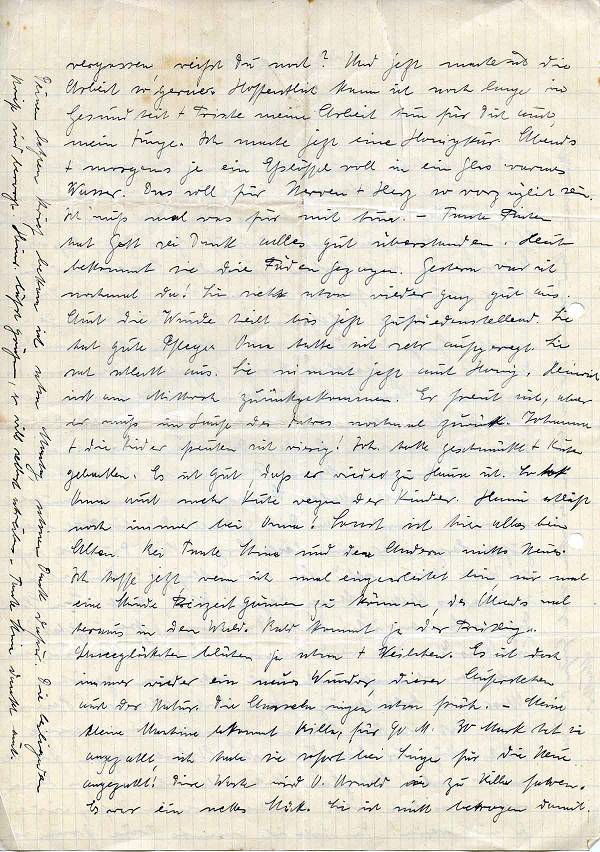 vergessen weißt Du noch? Und jetzt macht mir die
Arbeit so gerne. Hoffentlich kann ich noch lange in
Gesundheit + Frische meine Arbeit tun für Dich auch,
mein Junge. Ich mache jetzt eine Honigkur Abends
+ morgens je ein Eßlöffel voll in ein Glas warmes
Wasser. Das soll für Nerven + Herz so vorzüglich sein.
Ich muß mal was für mich tun. – Tante
hat Gott sei Dank alles gut überstanden. Heute
bekommt sie die Fäden gezogen. Gestern war ich
nochmal da! Sie sieht schon wieder ganz gut aus.
Auch die Wunde heilt bis jetzt zufriedenstellend. Sie
hat gute Pflege. Oma hatte sich sehr aufgeregt. Sie
sah schlecht aus. Sie nimmt jetzt auch Honig. Heinrich
ist am Mittwoch zurückgekommen. Er freut sich, aber
er muß im Laufe des Jahres nochmal zurück. Johanna
+ die Kinder freuten sich riesig! Joh. hatte geschmückt + Kuchen
gebacken. Es ist gut, daß er wieder zu Hause ist. So hat
Oma auch mehr Ruhe wegen der Kinder. Hanni schläft
noch immer bei Oma. Sonst ist hier alles beim
Alten. Bei Tante Stina und den Andern nichts Neues.
Ich hoffe jetzt wenn ich mal eingearbeitet bin, mir mal
eine Stunde Freizeit gönnen zu können, des Abends mal
heraus in den Wald. Bald kommt ja der Frühling.
Schneeglöckchen blühen ja schon + Veilchen. Es ist doch
immer wieder ein neues Wunder, dieses Auferstehen
aus der Natur. Die Amseln singen schon früh. – Meine
kleine Maschine bekommt Killa, für 90 M. 30 Mark hat sie
angezahlt, ich habe sie sofort bei Singer für die Neue
angezahlt! Diese Woche wird O. Arnold sie zu Killa fahren.
Es war ein nettes Stück. Sie ist nicht betrogen damit.
Deine bekam ich schon Montag, schönen Dank dafür. Die
und Heinr. läßt grüßen, er will selbst schreiben. – Tante Stina dankt auch.